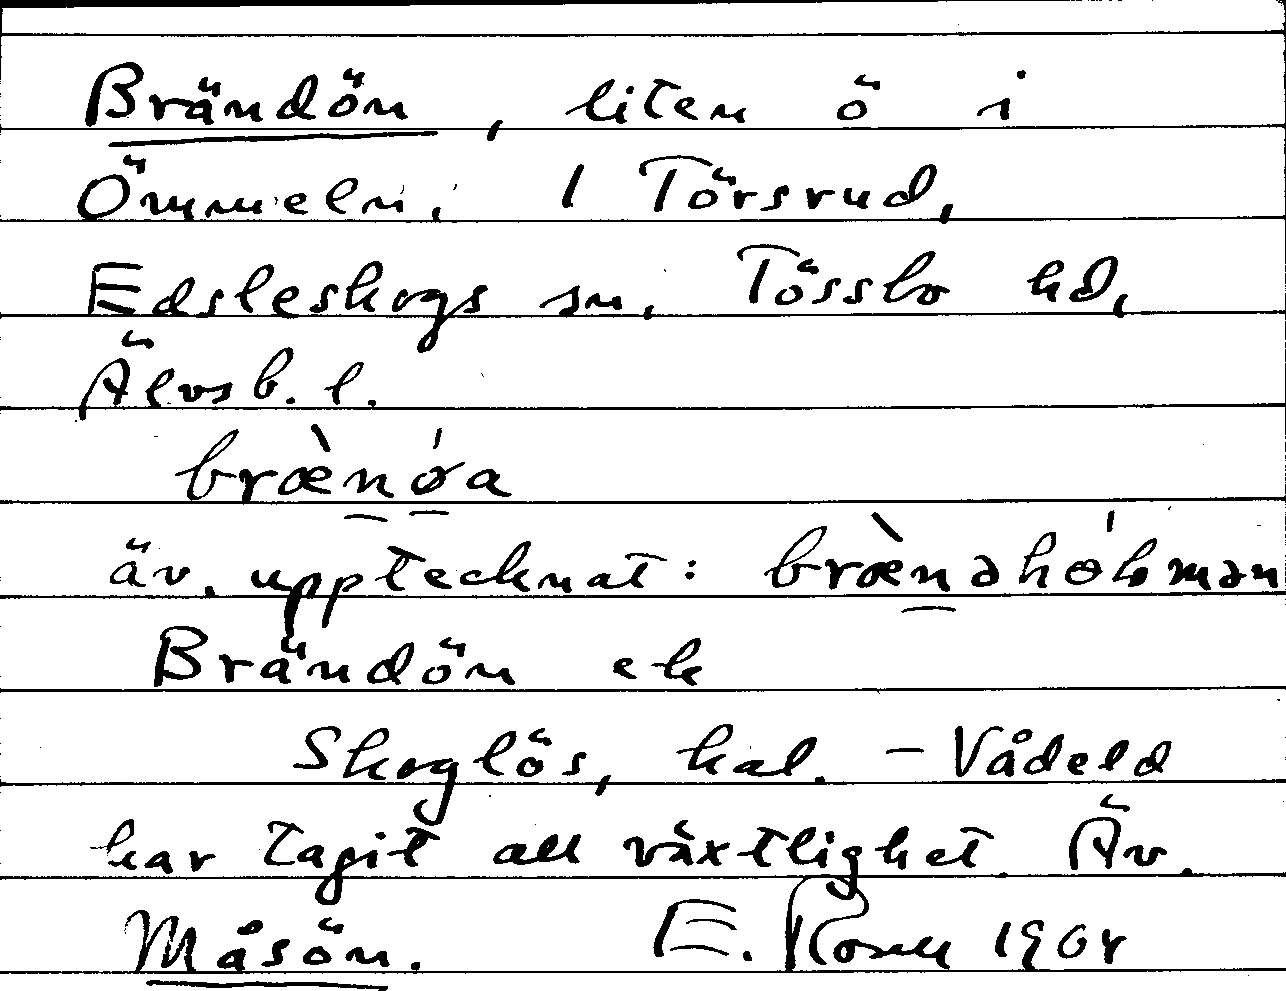 Brändön, liten ö i
Ömmeln. I Törsrud,
Edsleskogs sn. Tössbo hd,
Älvsb. l.
bræ̀nǿa
äv. upptecknat: bræ̀nəhólmən
Brändön ek
Skoglös, kal. – Vådeld
har tagit all växtlighet. Äv.
Måsön. E. 1904